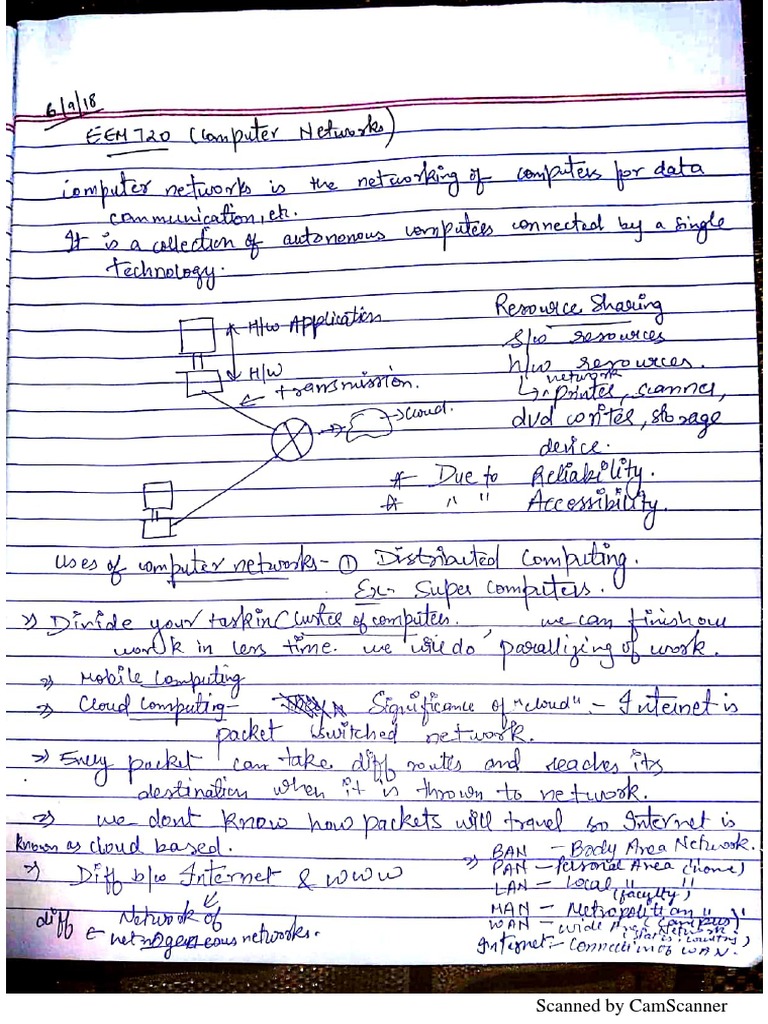 6/9/18
EEM720 (Computer Networks)
Computer networks is the networking of computers for data
communication, etc.
It is a collection of autonomous computers connected by a single
technology.
H/w Application
H/W
transmission.
cloud.
Resource Sharing
S/w resources
h/w resources.
network
printer, scanner,
dvd writer, storage
device.
* Due to Reliability.
* " " Accessibility.
Uses of computer networks - ① Distributed Computing.
Ex:- Super Computers.
=> Divide your task in Cluster of computers. we can finish our
work in less time. we will do parallizing of work.
=> Mobile Computing
=> Cloud Computing- Significance of "cloud" - Internet is
packet switched network.
=> Every packet can take diff routes and reaches its
destination when it is thrown to network.
=> we dont know how packets will travel so Internet is
known as cloud based.
=> Diff b/w Internet & WWW
Network of
diff
networks.
=> BAN - Body Area Network.
PAN - Personal Area (home)
LAN - Local " "
(faculty)
MAN - Metropolitian " "
(Campus)
WAN - Wide Area Network
(States, Country)
Internet - Connection of WAN.
Scanned by CamScanner